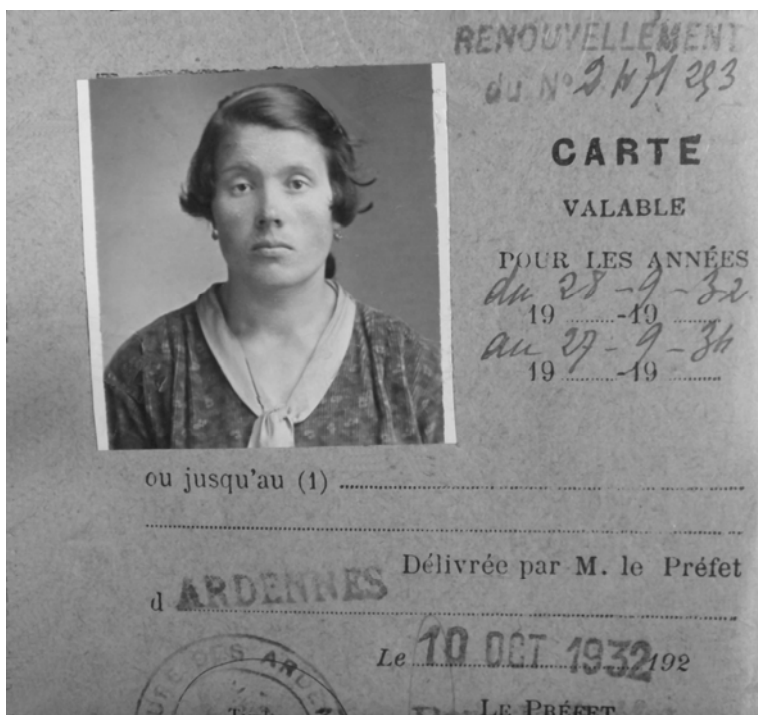 RENOUVELLEMENT
du N° 2471293
CARTE
VALABLE
POUR LES ANNÉES
du 28-9-32
19 ........-19 ........
au 27-9-34
19 ........-19 ........
ou jusqu'au (1)
Délivrée par M. le Préfet
d ARDENNES
Le 10 OCT 1932 192
LE PRÉFET
DES ARDEN